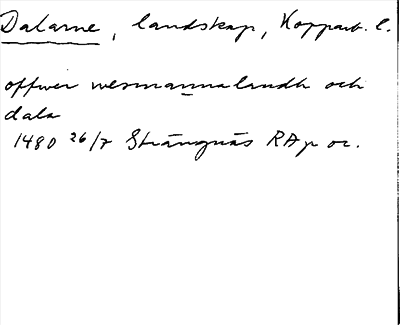 Dalarne, landskap, Kopparb. l.
offwer wesmannalandh och
dala
1480 26/7 Strängnäs RAp or.